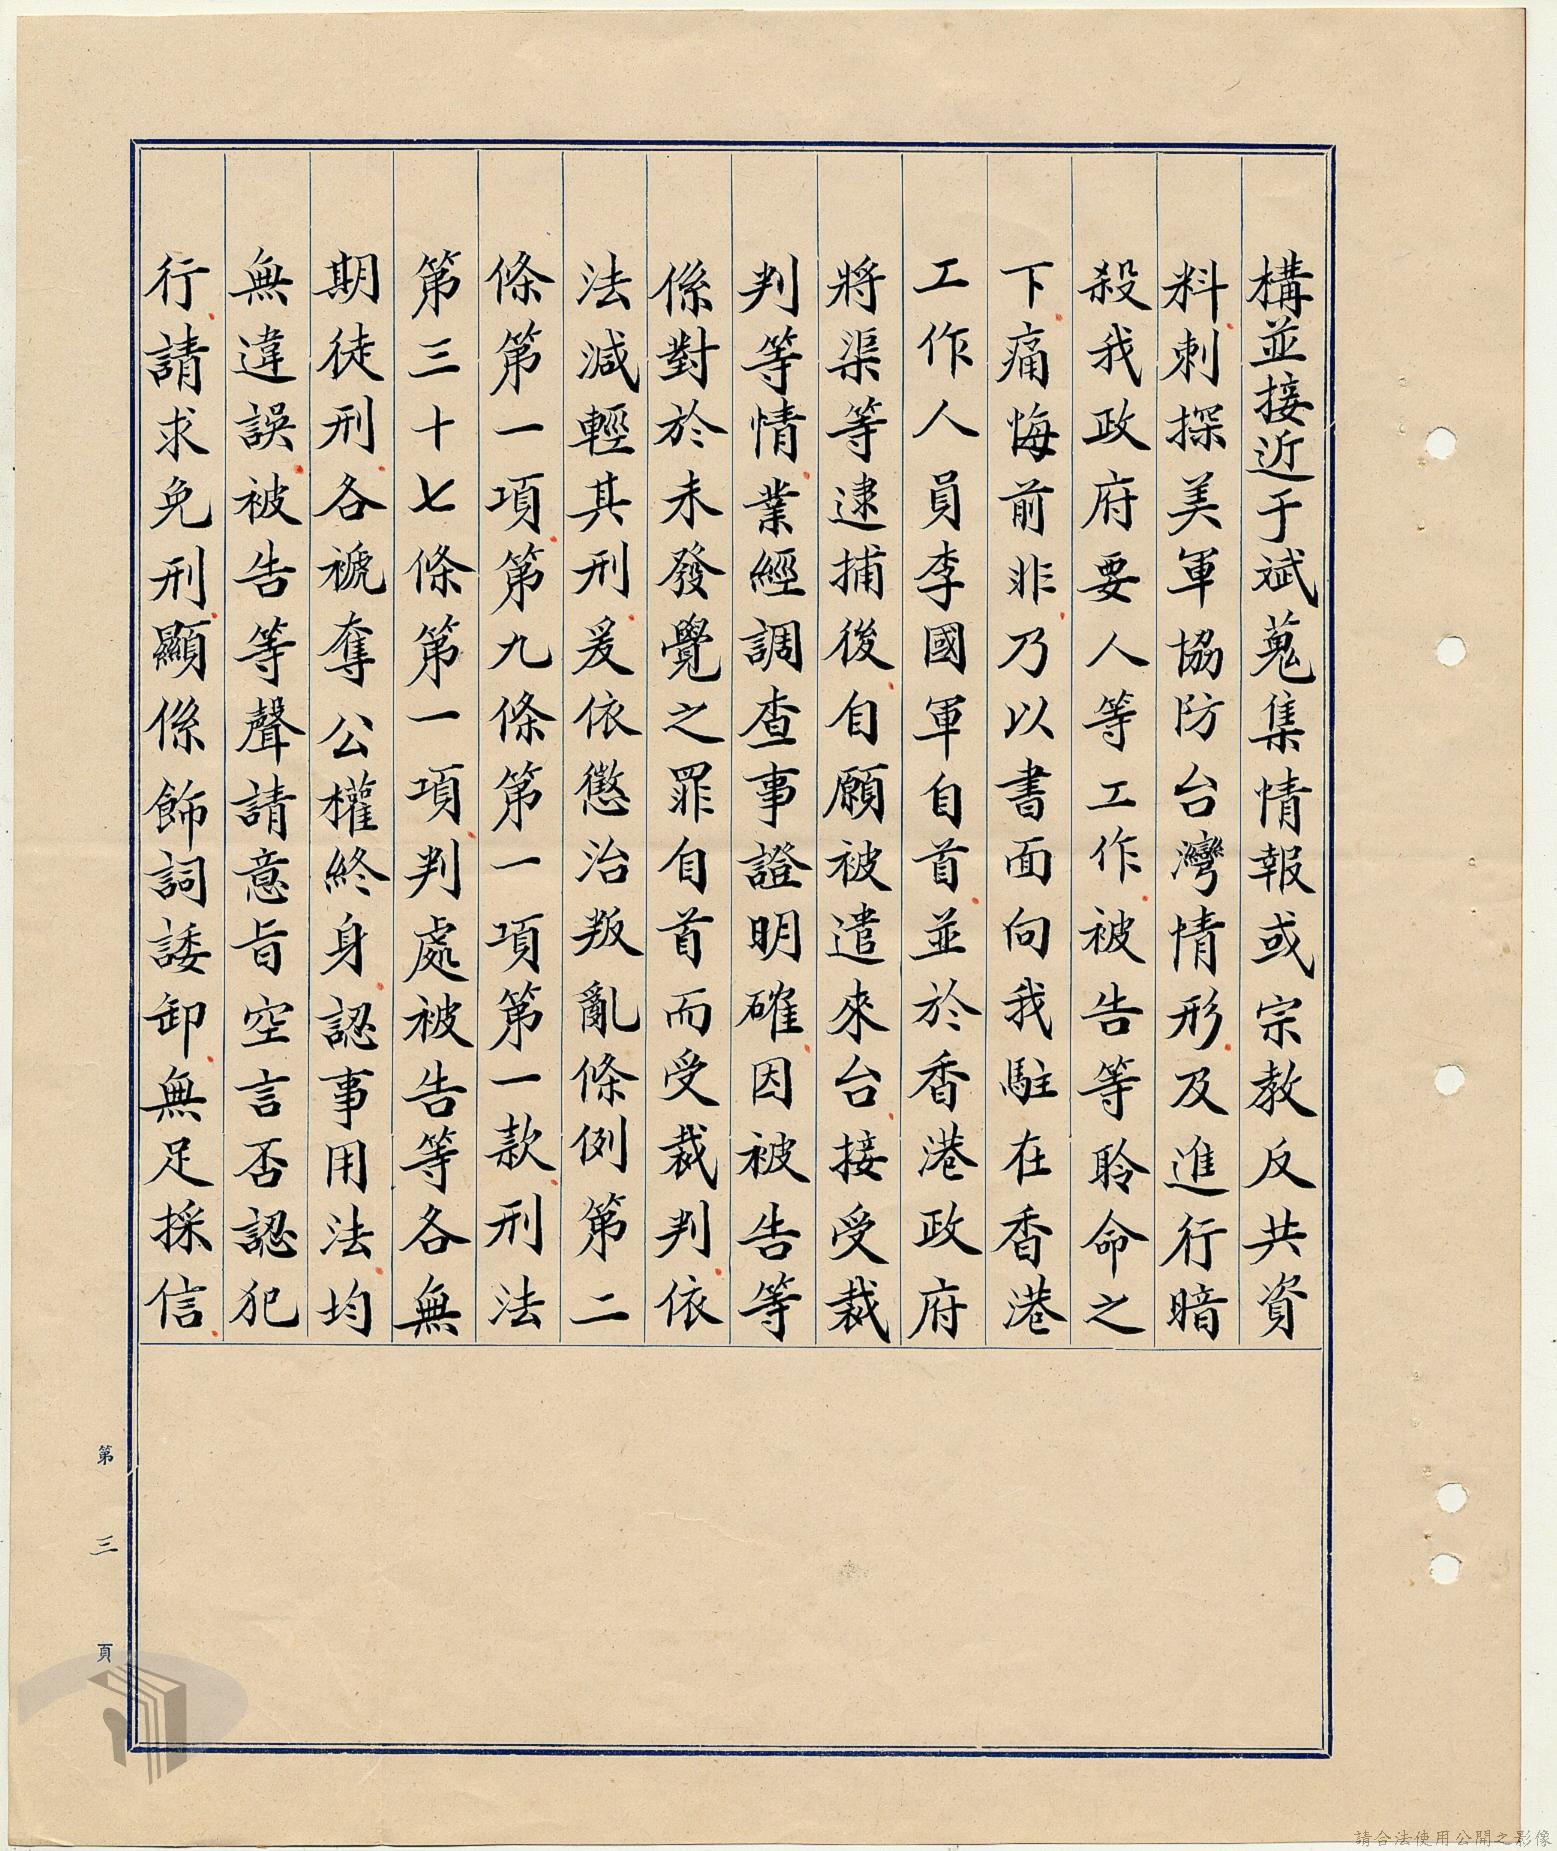 構並接近于斌蒐集情報或宗教反共資
料刺探美軍協防台灣情形及進行暗
殺我政府要人等工作被告等聆命之
下痛悔前非乃以書面向我駐在香港
工作人員李國軍自首並於香港政府
將渠等逮捕後自願被遣來台接受裁
判等情業經調查事證明確因被告等
係對於未發覺之罪自首而受裁判依
法減輕其刑爰依懲治叛亂條例第二
條第一項第九條第一項第一款刑法
第三十七條第一項判處被告等各無
期徒刑各褫奪公權終身認事用法均
無違誤被告等聲請意旨空言否認犯
行請求免刑顯係飾詞諉卸無足採信
第三頁
請合法使用公開之影像